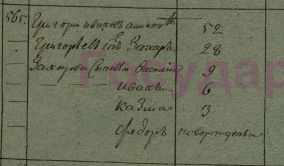 565.
Григорий Иванов 52
Григорьев сын Захаръ 28
Захаровы сыновья Василий 9
Иванъ 6
Казма 3
Федоръ новорожденный
Государ